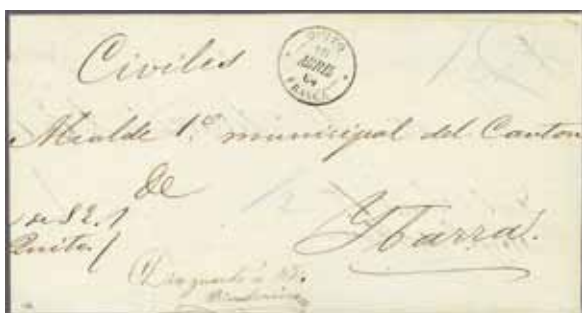 Civiles
QUITO
ABRIL
FRANCA
Alcalde 1.º municipal del Canton
de
Ybarra.
Quito